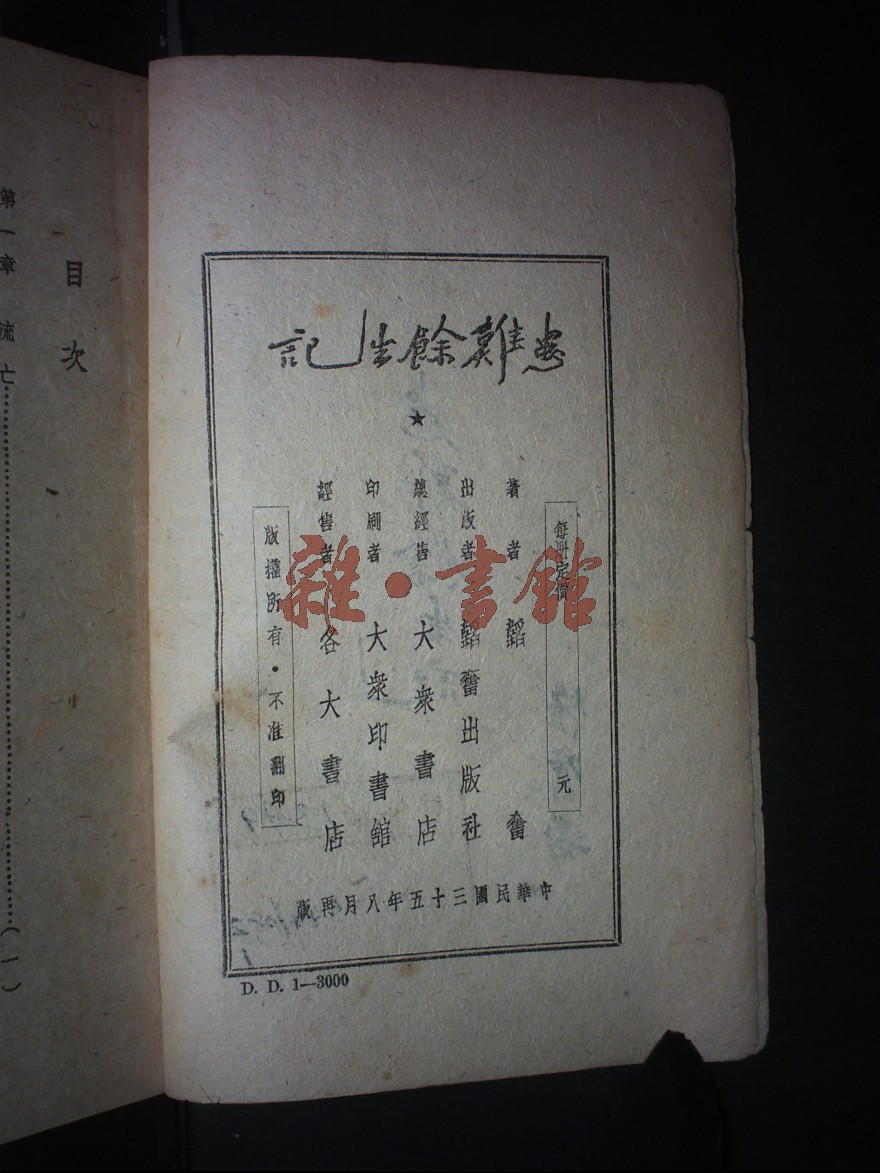 患難餘生記
★
每册定價 元
著者 韜奮
出版者 韜奮出版社
總經售 大衆書店
印刷者 大衆印書館
經售者 各大書店
版權所有・不准翻印
中華民國三十五年八月再版
D. D. 1—3000
雜・書館
目次
第一章 流亡……(一)